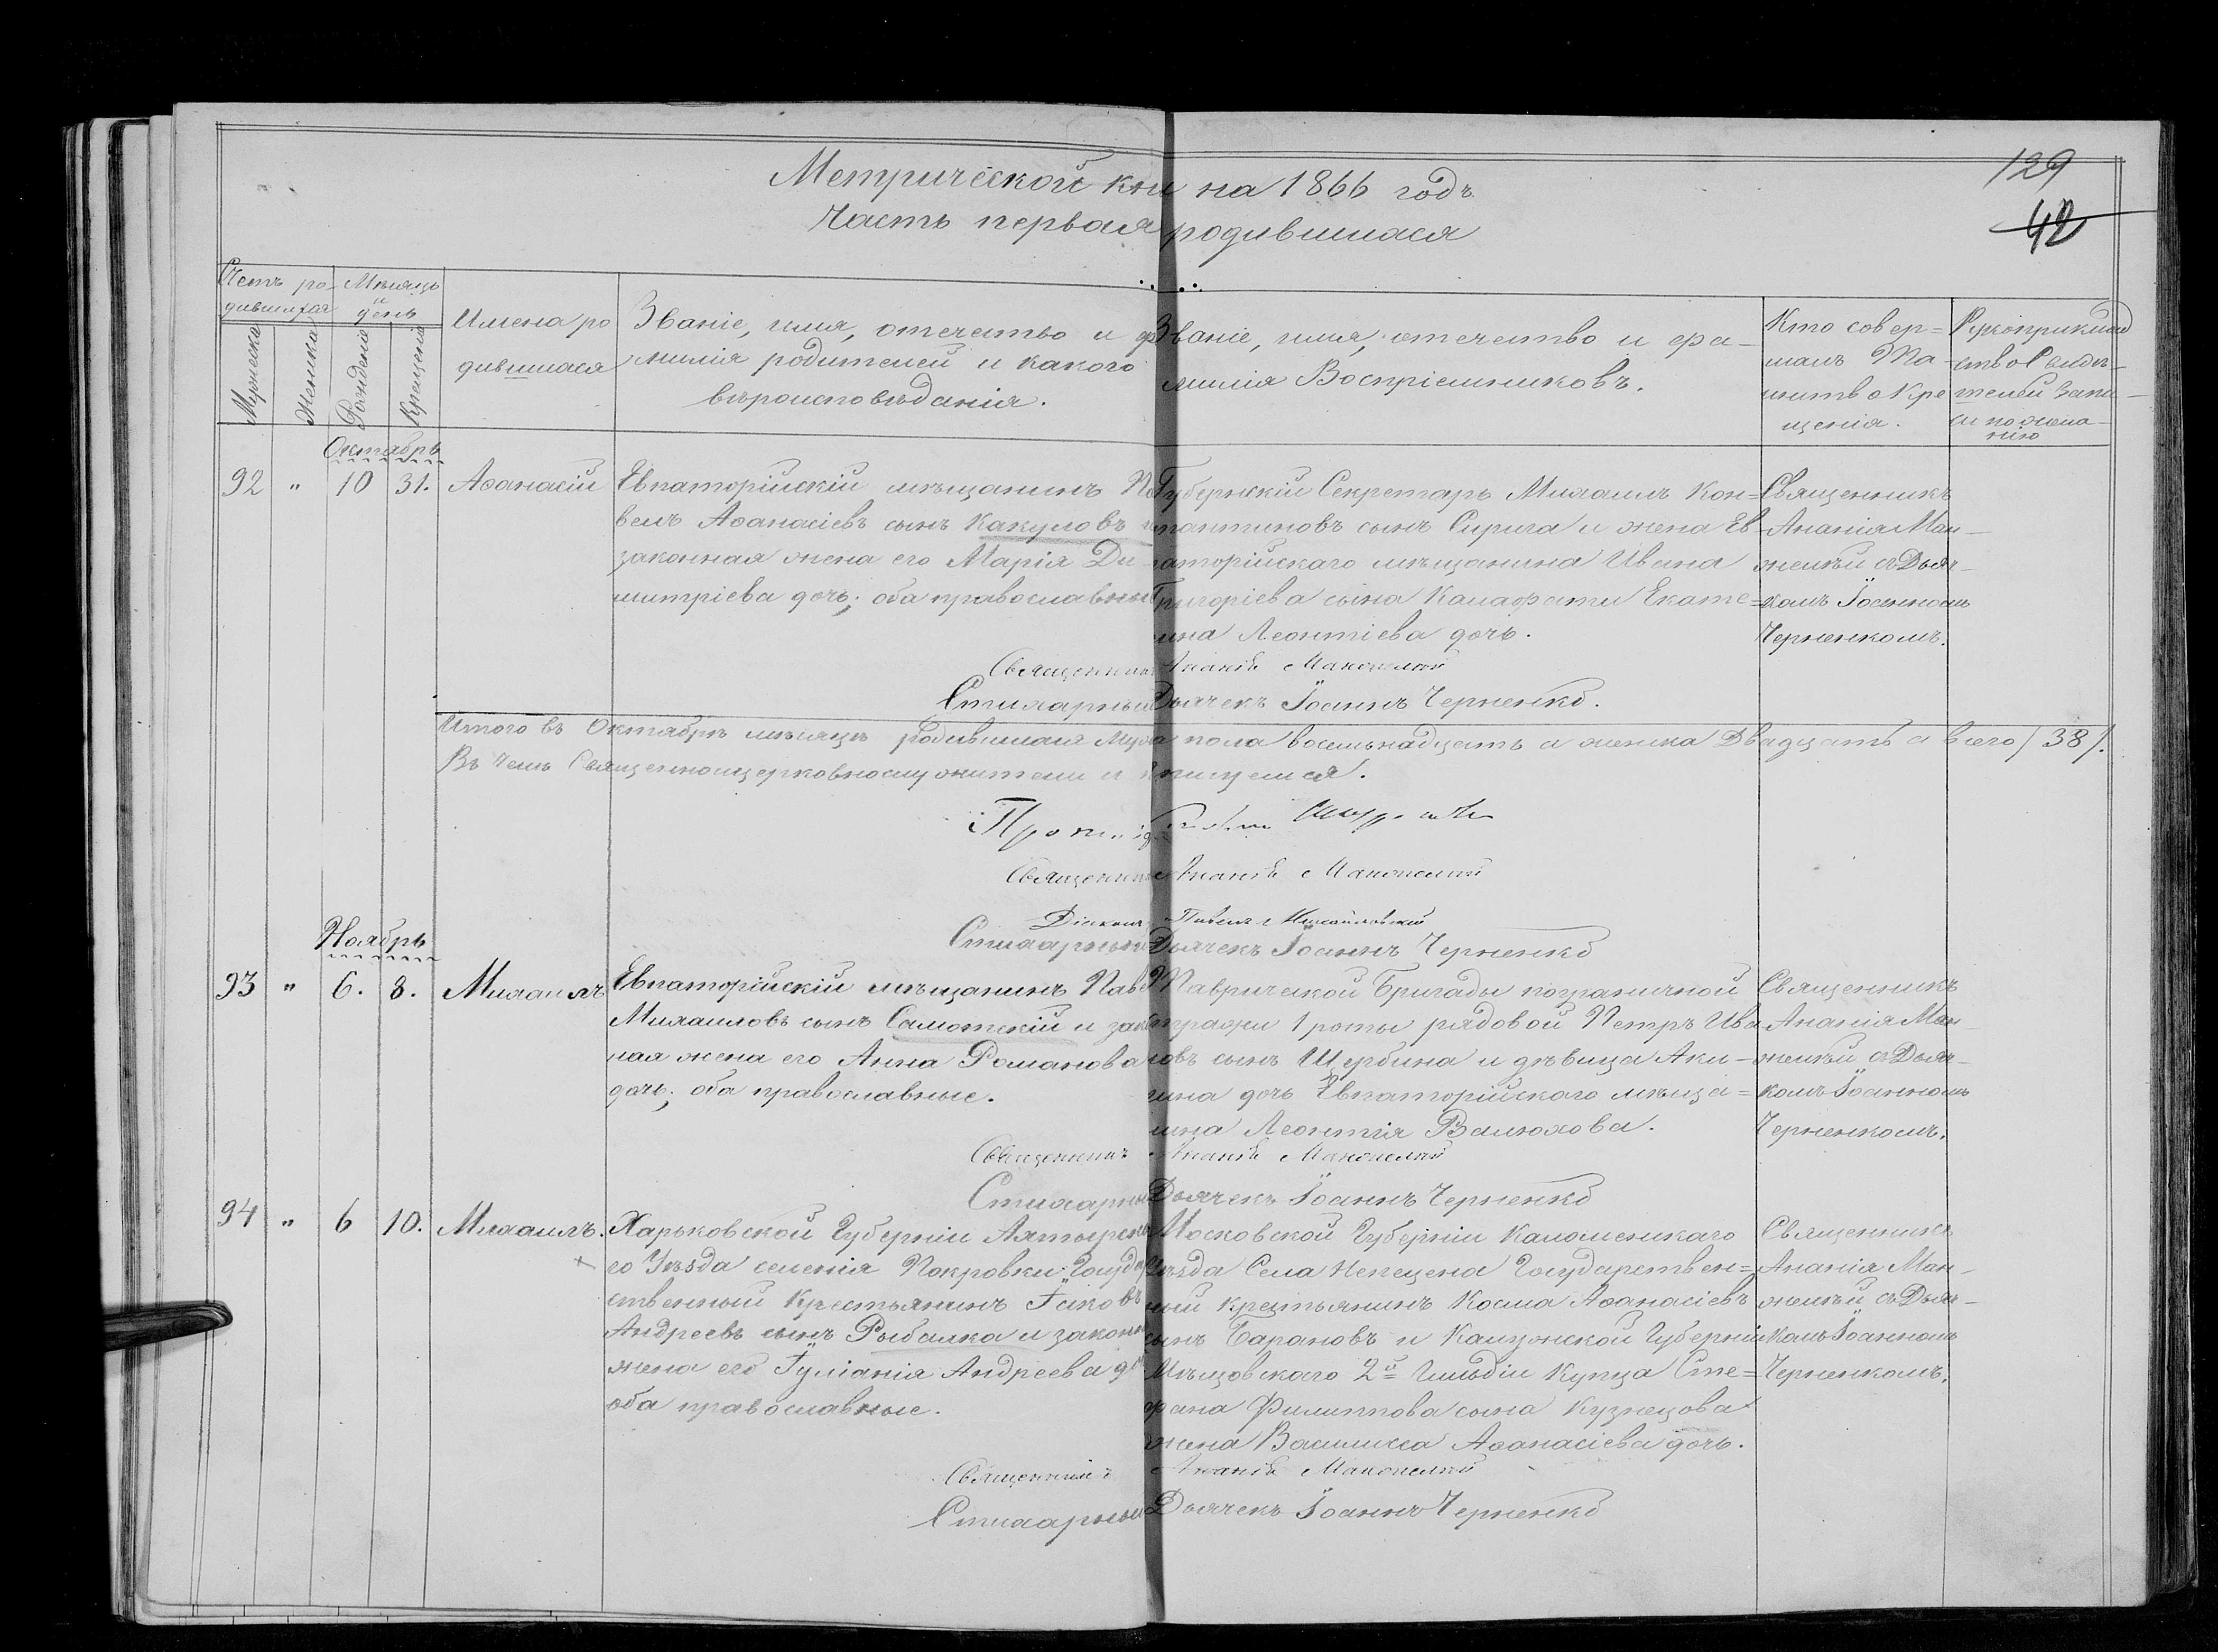 129
42
Метрической кни на 1866 годъ
Часть первая родившиася
Счетъ ро-
дившихся
Мѣсяцъ
и
день
Мужеска
Женска
Рожденія
Крещенія
Имена ро
дившиася
Званіе, имя, отечество и ф
милія родителей и какого
вѣроисповѣданія.
Званіе, имя, отечество и фа-
милія Воспріемниковъ.
Кто совер=
шалъ Та-
инство Кре
щенія.
Рукоприклад
ство Свидѣ-
телей запи-
си по жела-
нію
Октябрь
92 " 10 31. Аѳанасій
Евпаторійскій мѣщанинъ Па
велъ Аѳанасіевъ сынъ Какуловъ и
законная жена его Марія Ди-
митріева дочь; оба православные
Губернскій Секретарь Михаилъ Кон=
стантиновъ сынъ Сирига и жена Ев-
паторійскаго мѣщанина Ивана
Григоріева сына Калафати Екате=
рина Леонтіева дочь.
Священникъ
Ананія Ман-
желѣй съ Дьяч-
комъ Іоанномъ
Черненкомъ.
Священникъ Ананій
Стихарный Дьячекъ Іоаннъ Черненко.
Итого въ Октябрѣ мѣсяцѣ родившиася Муж пола восемьнадцать а женска Двадцать а всего /38/.
Въ чемъ Священноцерковнослужители и подпишемся.
Священникъ Ананій
Діаконъ Павелъ
Стихарный Дьячекъ Іоаннъ Черненко
Ноябрь
93 " 6. 8. Михаилъ
Евпаторійскій мѣщанинъ Паве
Михаиловъ сынъ Самотскій и зак
ная жена его Анна Романова
дочь; оба православные.
Таврической Бригады пограничной
стражи 1 роты рядовой Петръ Ива
новъ сынъ Щербина и дѣвица Аки-
лина дочь Евпаторійскаго мѣща=
нина Леонтія Валюхова.
Священникъ
Ананія Ман-
желѣй съ Дьяч-
комъ Іоанномъ
Черненкомъ.
Священникъ Ананій
Стихарный Дьячекъ Іоаннъ Черненко
94 " 6 10. Михаилъ.
Харьковской Губерніи Ахтырск
го Уѣзда селенія Покровки Госуда
ственный Крестьянинъ Іаковъ
Андреевъ сынъ Рыбалка и законн
жена его Іуліанія Андреева д
оба православные.
Московской Губерніи Коломенскаго
Уѣзда Села Непецена Государствен=
ный крестьянинъ Косма Аѳанасіевъ
сынъ Барановъ и Калужской Губерніи
Мѣщовскаго 2й Гильдіи Купца Сте=
фана Филиппова сына Кузнецова
жена Василиса Аѳанасіева дочь.
Священникъ
Ананія Ман-
желѣй съ Дьяч-
комъ Іоанномъ
Черненкомъ.
Священникъ Ананій
Стихарный Дьячекъ Іоаннъ Черненко